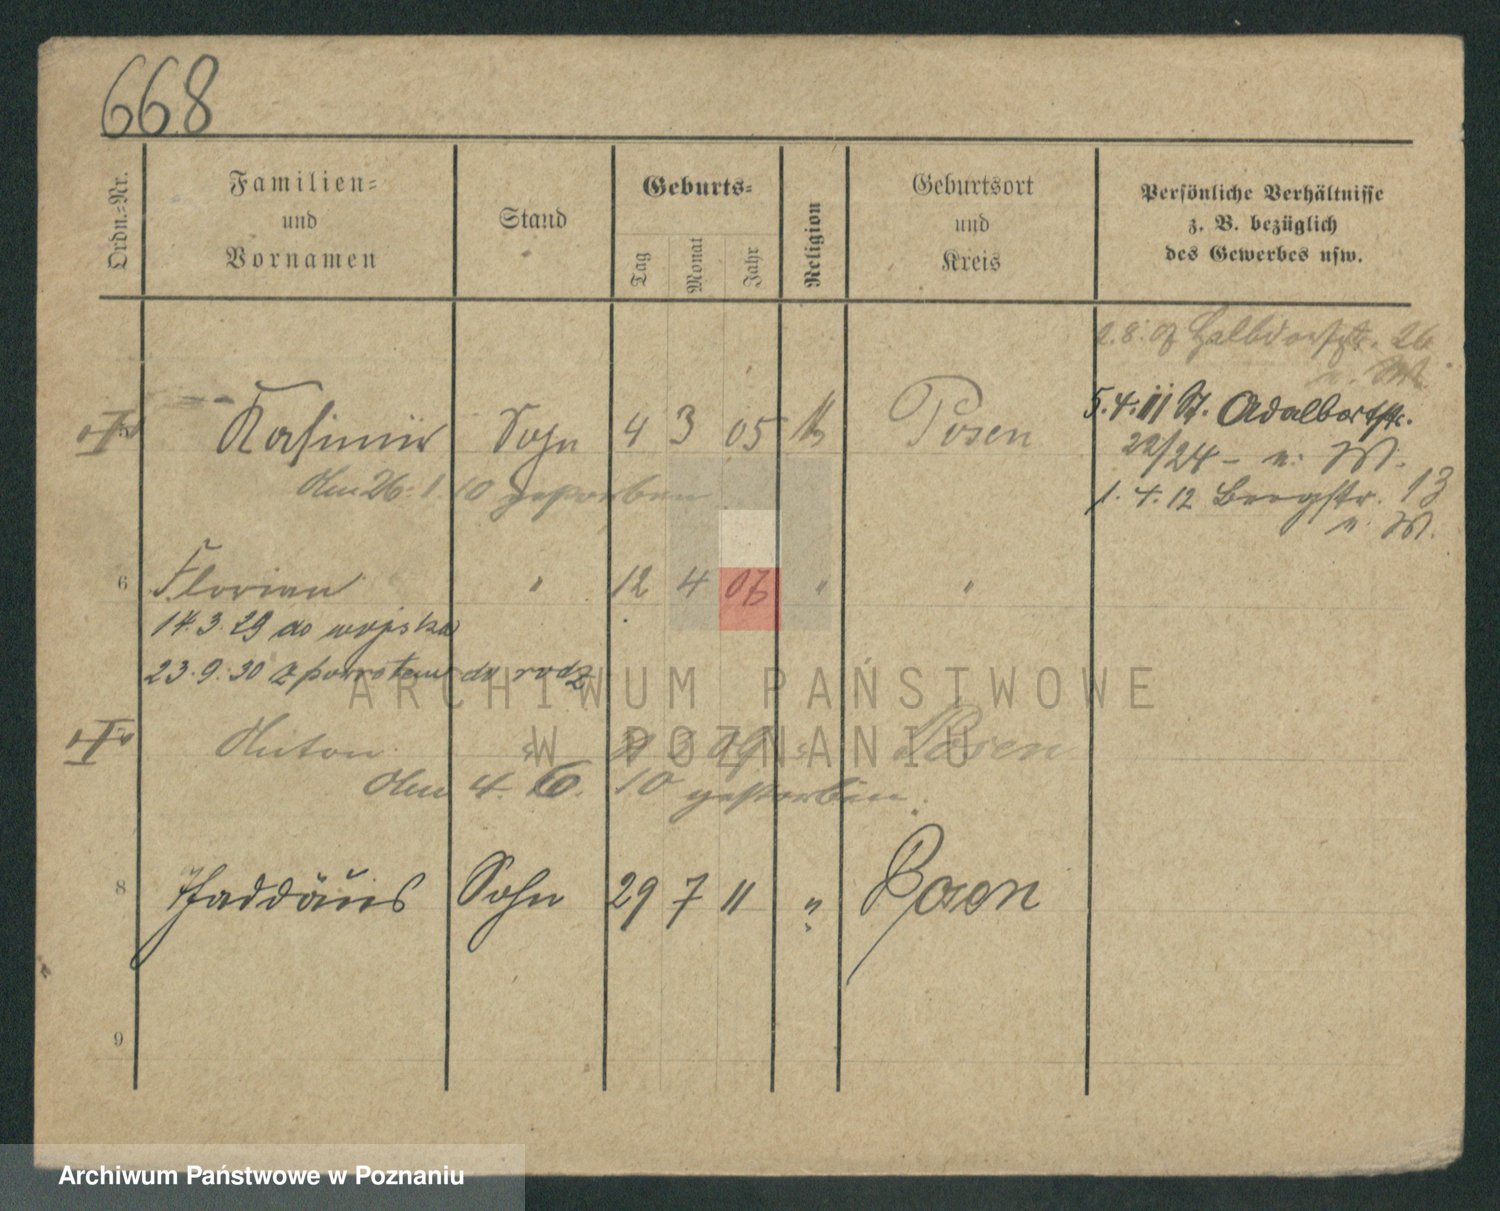 668
Ordn.=Nr.
Familien=
und
Vornamen
Stand
Geburts=
Tag
Monat
Jahr
Religion
Geburtsort
und
Kreis
Persönliche Verhältnisse
z. B. bezüglich
des Gewerbes usw.
Halbdorfstr. 26
5. 4. 11 St. Adalbertstr.
22/24 - n. W.
1. 4. 12 Bergstr. 13
n. W.
Kasimir Sohn 4 3 05 Posen
Den 26. 1. 10 gestorben
6 Florian " 12 4 07 " "
14. 3. 29 do wojska
23. 9. 30 z powrotem do rodz
Anton 09 Posen
Den 4. 6. 10 gestorben.
8 Thaddäus Sohn 29 7 11 " Posen
9
ARCHIWUM PAŃSTWOWE
W POZNANIU
Archiwum Państwowe w Poznaniu